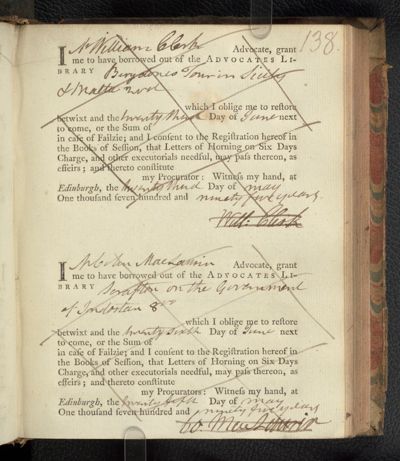 138.
I Mr William Clerk Advocate, grant
me to have borrowed out of the ADVOCATES LI-
BRARY Brydones Tour in Sicily
& Malta 2 vol
which I oblige me to restore
betwixt and the twenty third Day of June next
to come, or the Sum of
in case of Failzie; and I consent to the Registration hereof in
the Books of Session, that Letters of Horning on Six Days
Charge, and other executorials needful, may pass thereon, as
effeirs; and thereto constitute
my Procurator: Witness my hand, at
Edinburgh, the twenty third Day of may
One thousand seven hundred and ninety five years.
Will: Clerk
I Mr Colin Maclaurin Advocate, grant
me to have borrowed out of the ADVOCATES LI-
BRARY Scrafton on the Government
of Indostan 8vo
which I oblige me to restore
betwixt and the twenty sixth Day of June next
to come, or the Sum of
in case of Failzie; and I consent to the Registration hereof in
the Books of Session, that Letters of Horning on Six Days
Charge, and other executorials needful, may pass thereon, as
effeirs; and thereto constitute
my Procurators: Witness my hand, at
Edinburgh, the twenty sixth Day of may
One thousand seven hundred and ninety five years
Co. MacLaurin